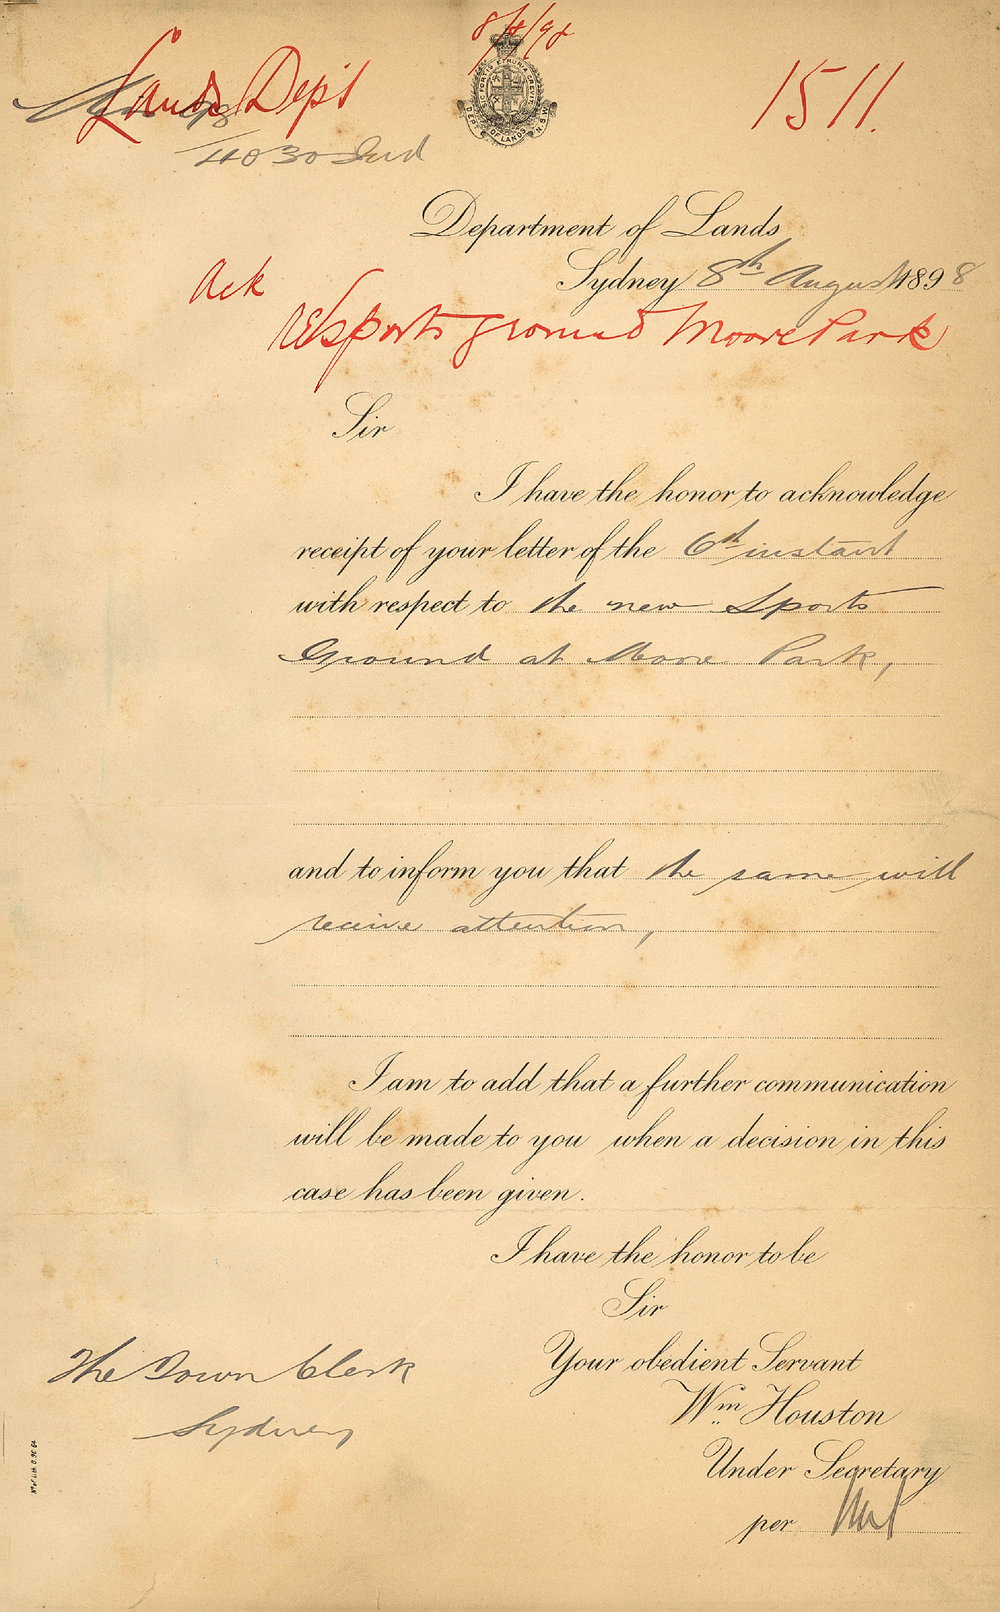 8/8/98
Lands Dept
1511.
98
4030 Ind
DEPT OF LANDS N.S.W.
Department of Lands
Sydney 8th August 1898
Ack
re Sports ground Moore Park
Sir
I have the honor to acknowledge
receipt of your letter of the 6th instant
with respect to the new Sports
Ground at Moore Park,
and to inform you that the same will
receive attention,
I am to add that a further communication
will be made to you when a decision in this
case has been given.
I have the honor to be
Sir
Your obedient Servant
Wm Houston
Under Secretary
per
The Town Clerk
Sydney